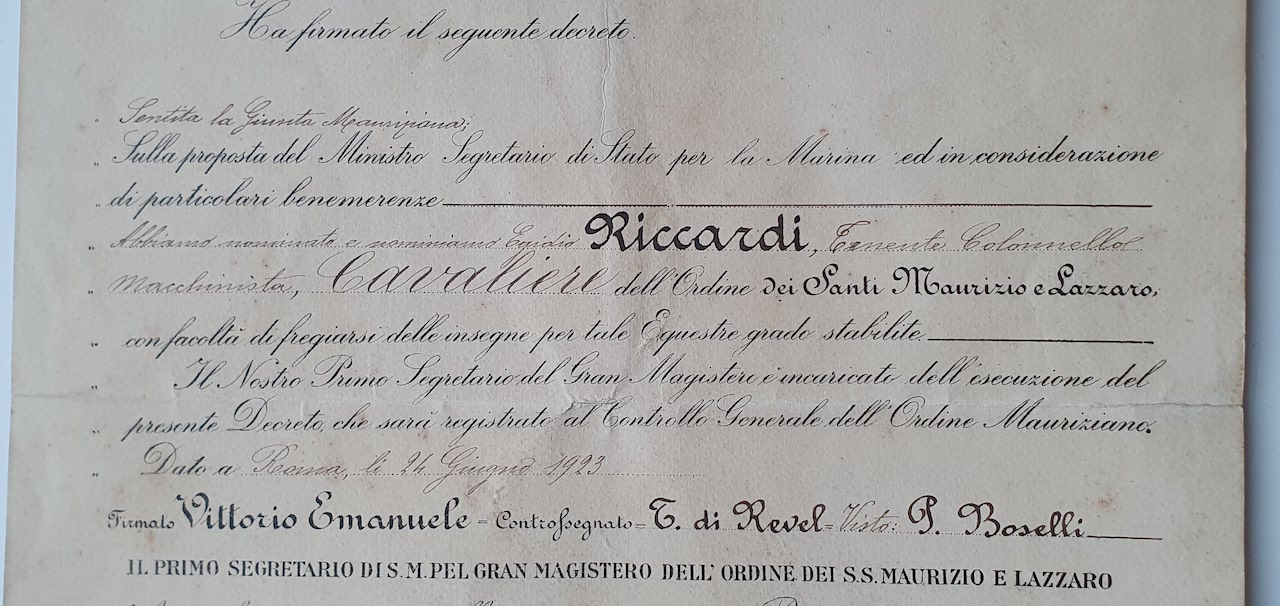 Ha firmato il seguente decreto.
„ Sentita la Giunta Mauriziana;
„ Sulla proposta del Ministro Segretario di Stato per la Marina ed in considerazione
„ di particolari benemerenze
„ Abbiamo nominato e nominiamo Egidio Riccardi, Tenente Colonnello
„ Macchinista, Cavaliere dell'Ordine dei Santi Maurizio e Lazzaro,
„ con facoltà di fregiarsi delle insegne per tale Equestre grado stabilite.
„ Il Nostro Primo Segretario del Gran Magistero è incaricato dell'esecuzione del
„ presente Decreto, che sarà registrato al Controllo Generale dell'Ordine Mauriziano.
„ Dato a Roma, li 24 Giugno 1923
Firmato Vittorio Emanuele = Controssegnato = T. di Revel = Visto: P. Boselli
IL PRIMO SEGRETARIO DI S. M. PEL GRAN MAGISTERO DELL'ORDINE DEI S.S. MAURIZIO E LAZZARO